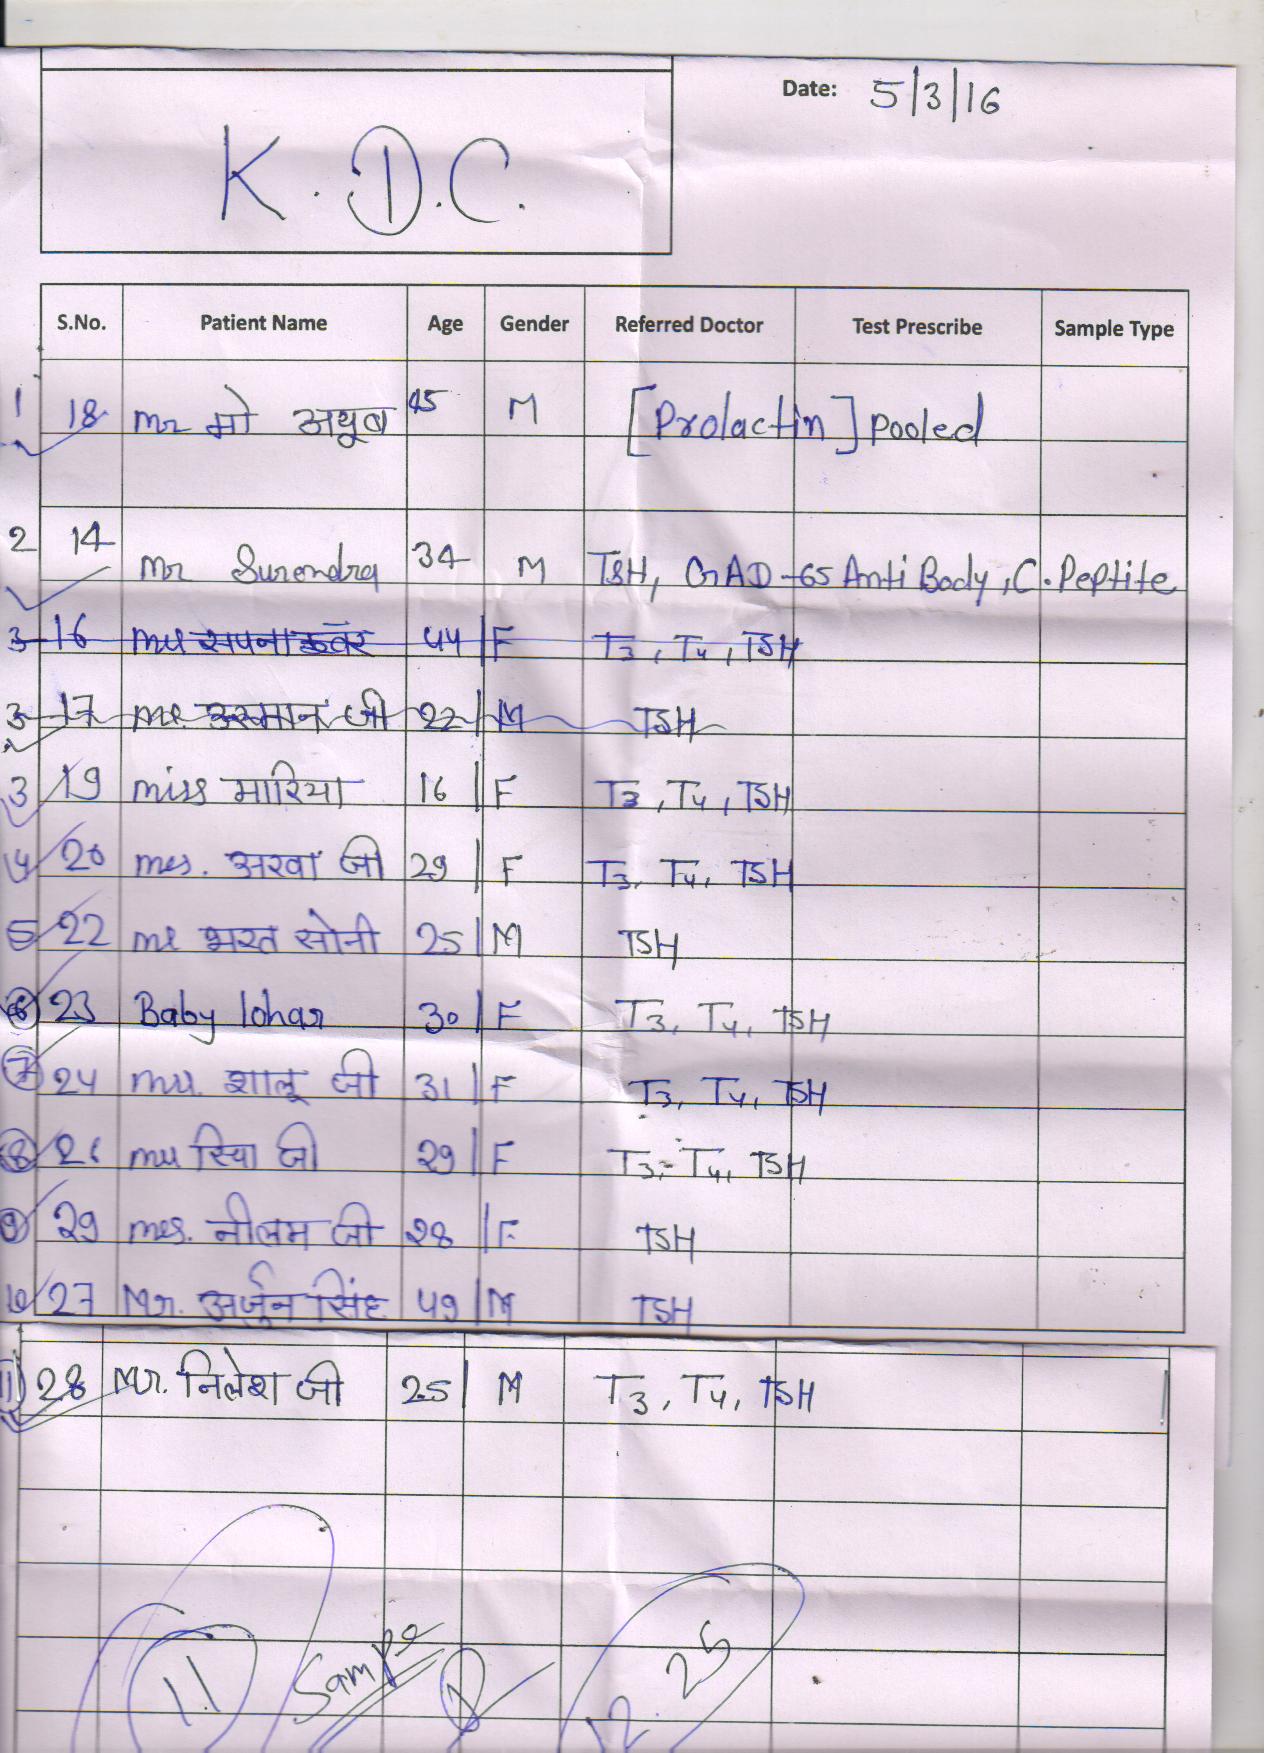 Date: 5/3/16
K.D.C.
S.No. Patient Name Age Gender Referred Doctor Test Prescribe Sample Type
1 18 Mr मो अयूब 45 M [Prolactin] Pooled
2 14 Mr Surendra 34 M TSH, GAD-65 Anti Body, C.Peptite
3 16 सपना कवँर 44 F T3, T4, TSH
3 17 Mr. उस्मान जी 22 M TSH
3 19 miss मारिया 16 F T3, T4, TSH
4 20 mrs. अरवा जी 29 F T3, T4, TSH
5 22 mr भरत सोनी 25 M TSH
6 23 Baby lohar 30 F T3, T4, TSH
7 24 शालू जी 31 F T3, T4, TSH
8 26 रिया जी 29 F T3, T4, TSH
9 29 mrs. नीलम जी 28 F TSH
10 27 Mr. अर्जुन सिंह 49 M TSH
11 28 Mr. निलेश जी 25 M T3, T4, TSH
11 Sample 12.25